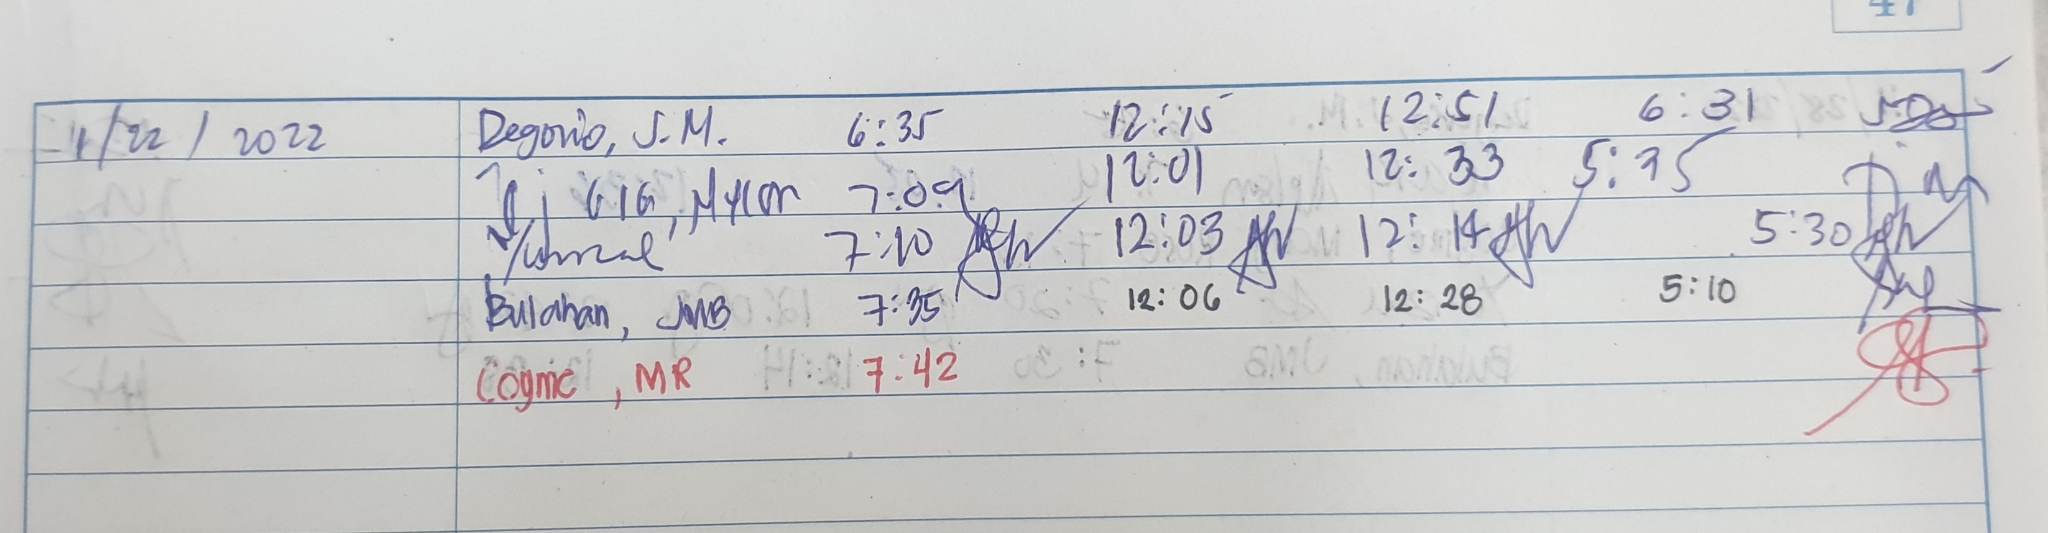 47
11/22/2022 Degorio, J.M. 6:35 12:15 12:51 6:31
7:09 12:01 12:33 5:35
7:10 12:03 12:14 5:30
Bulahan, JMB 7:35 12:06 12:28 5:10
Cogme, MR 7:42